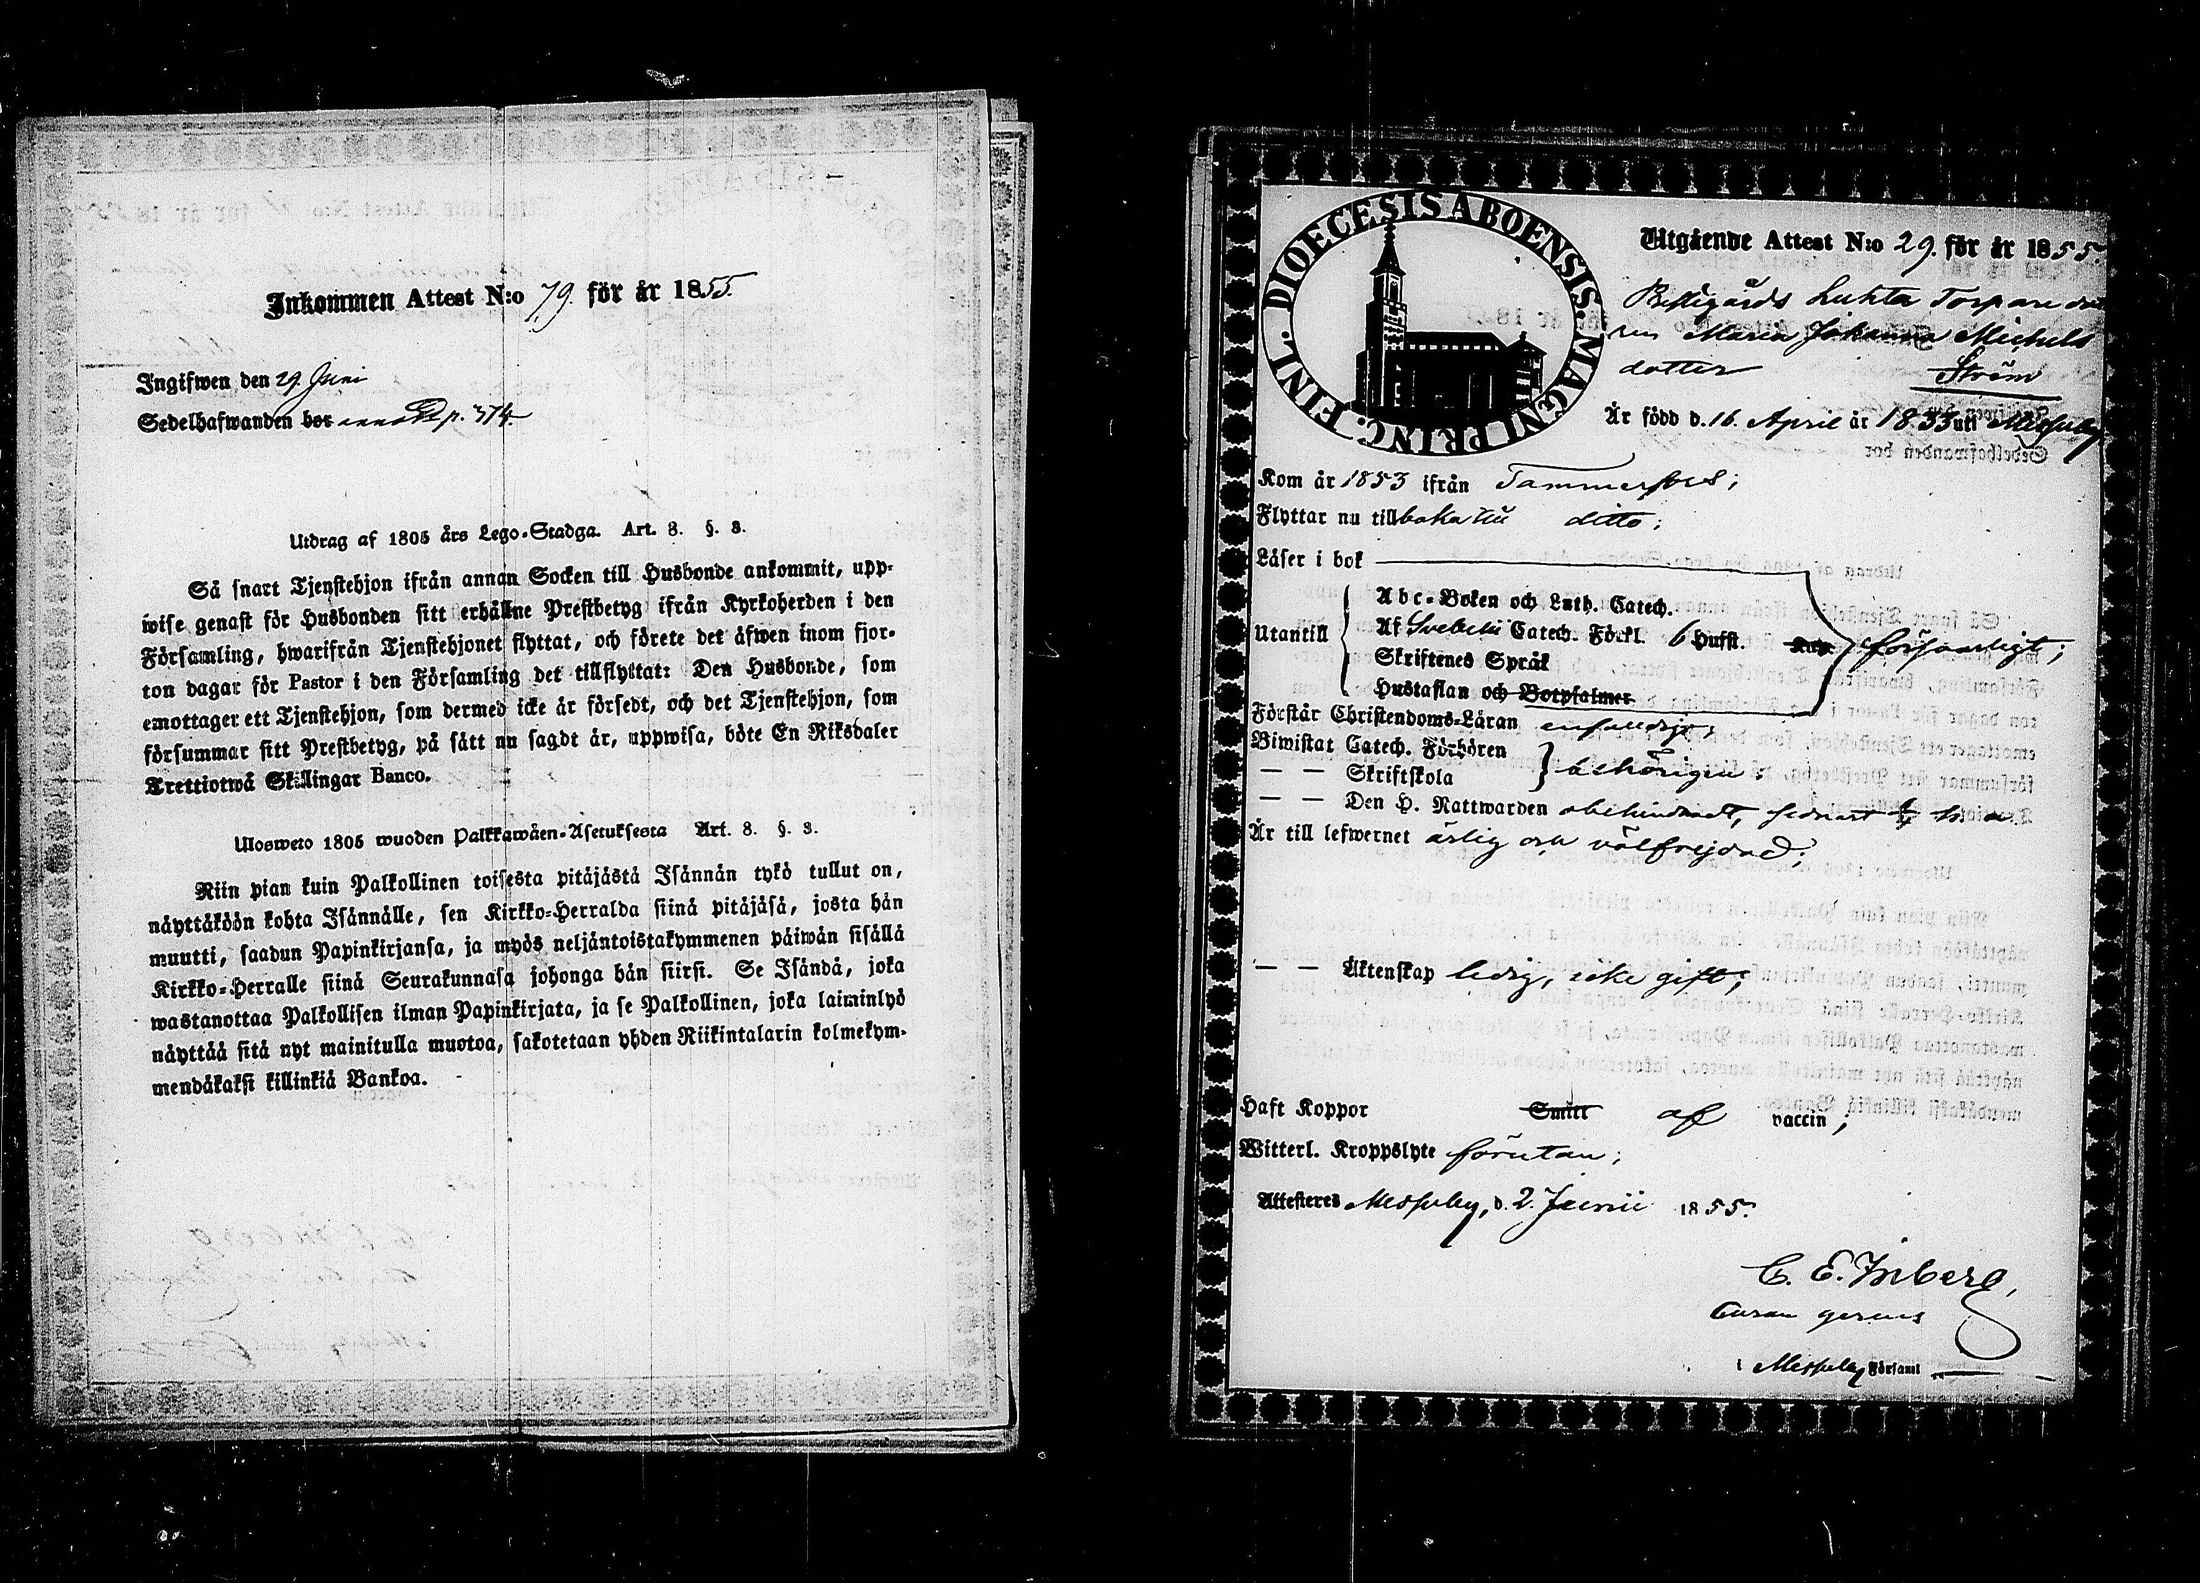 Inkommen Attest N:o 79. för år 1855.
Ingifwen den 29 Juni
Sedelhafwanden bor p. 374.
Utdrag af 1805 års Lego-Stadga. Art. 8. §. 3.
Så snart Tjenstehjon ifrån annan Socken till Husbonde ankommit, upp-
wise genast för Husbonden sitt erhållne Prestbetyg ifrån Kyrkoherden i den
Församling, hwarifrån Tjenstehjonet flyttat, och förete det äfwen inom fjor-
ton dagar för Pastor i den Församling det tillflyttat: Den Husbonde, som
emottager ett Tjenstehjon, som dermed icke är försedt, och det Tjenstehjon, som
försummar sitt Prestbetyg, på sätt nu sagdt är, uppwisa, böte En Riksdaler
Trettiotwå Skillingar Banco.
Ulosweto 1805 wuoden Palkkawäen-Asetuksesta Art. 8. §. 3.
Niin pian kuin Palkollinen toisesta pitäjästä Isännän tykö tullut on,
näyttäköön kohta Isännälle, sen Kirkko-Herralda siinä pitäjäsä, josta hän
muutti, saadun Papinkirjansa, ja myös neljäntoistakymmenen päiwän sisällä
Kirkko-Herralle siinä Seurakunnasa johonga hän siirsi. Se Isändä, joka
wastanottaa Palkollisen ilman Papinkirjata, ja se Palkollinen, joka laiminlyö
näyttää sitä nyt mainitulla muotoa, sakotetaan yhden Riikintalarin kolmekym-
mendäkaksi killinkiä Bankoa.
FINL. DIOECESIS ABOENSIS MAGNI PRINC.
Utgående Attest N:o 29. för år 1855.
Luhta Torpare
Maria Johanna Michels
dotter Ström
Är född d. 16. April år 1833 uti Messuby
Kom år 1853 ifrån Tammerfors;
Flyttar nu tillbaka till ditto;
Läser i bok
Abc-Boken och Luth. Catech.
Utantill Af Svebelii Catech. Förkl. 6 Hufst. försvarligt;
Skriftenes Språk
Hustaflan och Botpsalmer
Förstår Christendoms-Läran enfaldigt;
Biwistat Catech. Förhören
— — Skriftskola behörigen;
— — Den H. Nattwarden obehindradt, sednast
Är till lefwernet ärlig och välfrejdad;
— — Äktenskap ledig, icke gift;
Haft Koppor Smitt af vaccin;
Witterl. Kroppslyte förutan;
Attesteres Messuby, d. 2. Junii 1855.
C. E. Inberg,
Curam gerens
i Messuby Församl